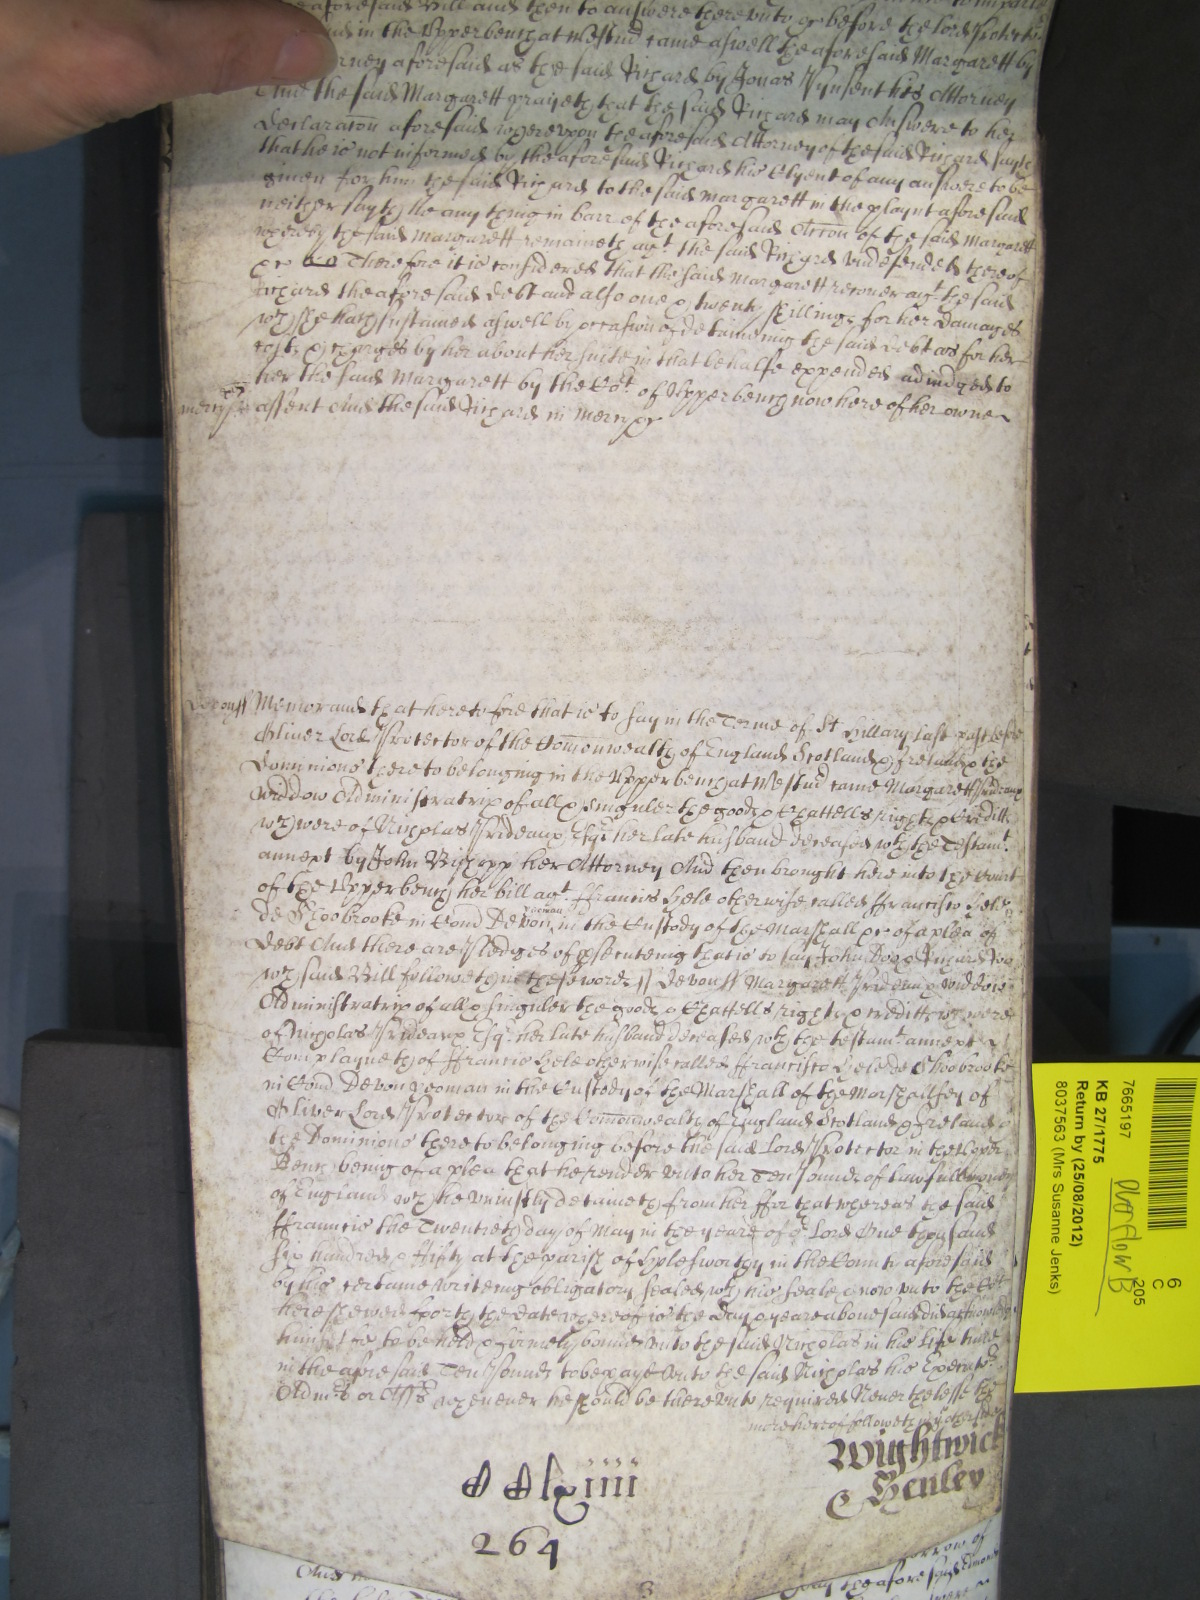 aforesaid Bill and then to answere thereunto &c before the lord Protector
in the Upper bench at Westmr came aswell the aforesaid Margarett by
aforesaid as the said Richard by Jonas Vynsent his Attorney
And the said Margarett prayeth that the said Richard may Answere to her
declaracon aforesaid whereupon the aforesaid Attorney of the said Richard sayth
that he is not informed by the aforesaid Richard his Clyent of any answere to be
given for him the said Richard to the said Margarett in the playnt aforesaid
neither sayth he any thing in barr of the aforesaid Accon of the said Margarett
whereby the said Margarett remaineth agt the said Richard undefended thereof
&c Therefore it is considered that the said Margarett recover agt the said
Richard the aforesaid debt and also one & twenty shillings for her Damages
wch she hath susteined aswell by occasion of deteineing the said debt as for her
costs & charges by her about her suite in that behalfe expended adiudged to
her the said Margarett by the Cort of Upper bench now here of her owne
mercy
assent And the said Richard in Mercy &c
Devon ss Memorand that heretofore that is to say in the Terme of St Hillary last past before
Oliver Lord Protector of the Comonwealth of England Scotland & Ireland & the
Dominions thereto belonging in the Upper bench at Westmr came Margarett Prideaux
widdow Administratrix of all & singuler the goods & Chattells rights & Creditts
wch were of Nicholas Prideaux Esqr her late husband deceased wth the Testamt
annext by John Bishopp her Attorney And then brought here into the Court
of the Upper bench her bill agt ffrancis Hele otherwise called ffrancisco Hele
de Shoobrooke in Comd Devon yeoman in the Custody of the Marshall &c of a plea of
Debt And there are Pledges of prsenteing that is to say John Doo & Richard Roo
wch said Bill followeth in these words ss Devon ss Margarett Prideaux widdow
Administratrix of all & singuler the goods & Chattells rights & creditts wch were
of Nicholas Prideaux Esqr her late husband deceased wth the testamt annext
Complayneth of ffrancis Hele otherwise called ffrancisco Hele de Shoobrooke
in Comd Devon yeoman in the Custody of the Marshall of the Marshallsey of
Oliver Lord Protector of the Comonwealth of England Scotland & Ireland &
the Dominions thereto belonging before the said Lord Protector in the Upper
Bench being of a plea that he render unto her Ten Pounds of lawfull money
of England wch he uniustly deteineth from her ffor that whereas the said
ffrancis the Twentieth day of May in the yeare of or Lord One thousand
six hundred & fifty at the parish of in the County aforesaid
by his certaine writeing obligatory sealed wth his seale & now unto the Cort
here shewed forth the date whereof is the Day & yeare abovesaid did acknowledge
himselfe to be held & firmely bound unto the said Nicholas in his life time
in the aforesaid Ten Pounds to be payd unto the said Nicholas his Executrs
Adminrs or Assrs whenever he should be thereunto required Neverthelesse the
more hereof followeth in ye other side
Wightwick
& Henley
CClxiiii
264
7665197
KB 27/1775
Return by (25/08/2012)
8037563 (Mrs Susanne Jenks)
6
C
205